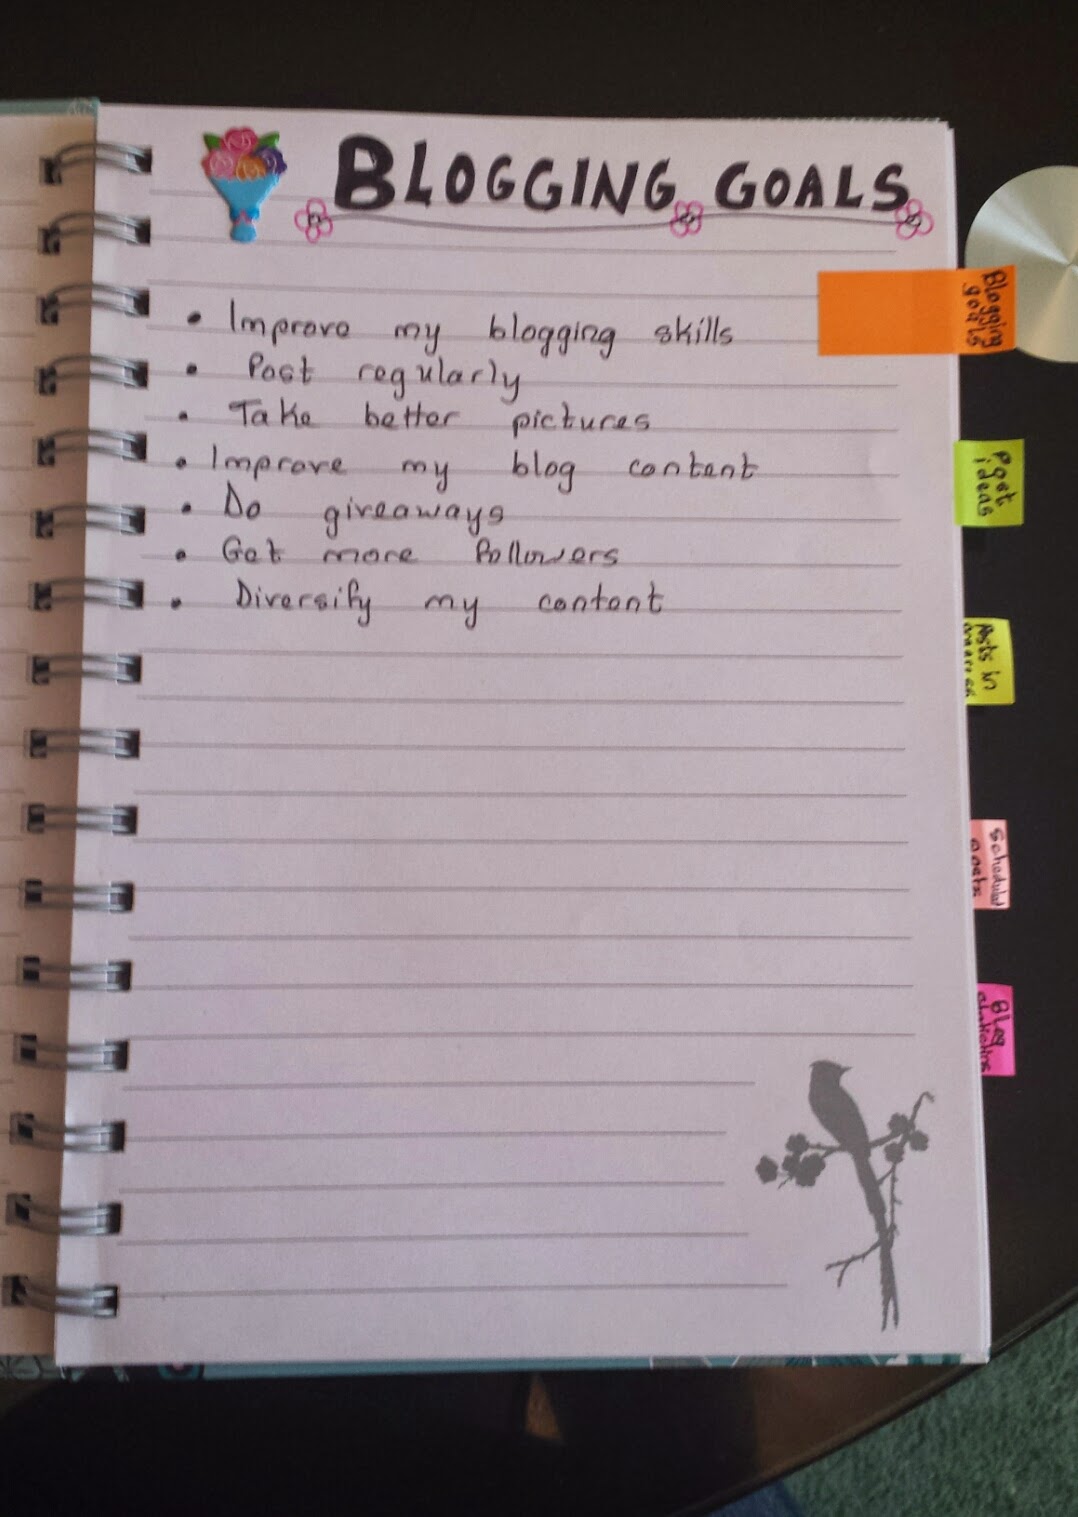 BLOGGING GOALS
• Improve my blogging skills
• Post regularly
• Take better pictures
• Improve my blog content
• Do giveaways
• Get more followers
• Diversify my content
Blogging
goals
Post
ideas
Posts in
Scheduled
posts
Blog
statistics